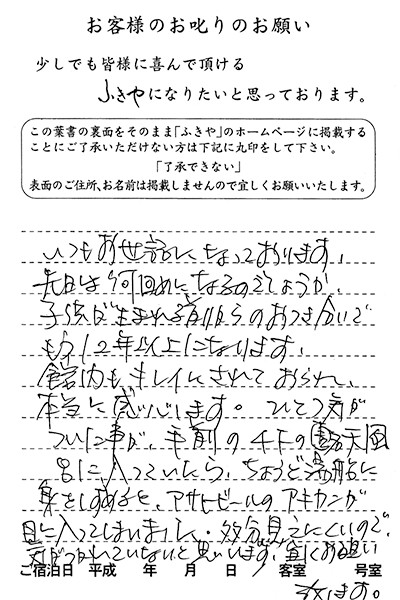 お客様のお叱りのお願い
少しでも皆様に喜んで頂ける
ふきやになりたいと思っております。
この葉書の裏面をそのまま「ふきや」のホームページに掲載する
ことにご了承いただけない方は下記に丸印をして下さい。
「了承できない」
表面のご住所、お名前は掲載しませんので宜しくお願いいたします。
いつもお世話になっております。
先日は何回めになるのでしょうか、
子供が生まれる前からのおつき合いで
もう12年以上になります。
館内もキレイにされておられ、
本当に感心します。ひとつ気が
ついた事が、手前の4Fの露天風
呂に入っていたら、ちょうど湯船に
身をしずめると、アサヒビールのアキカンが
目に入ってしまいました。多分見えにくいので、
気がつかれていないと思います。宜しくお願い
致します。
ご宿泊日 平成 年 月 日 客室 号室